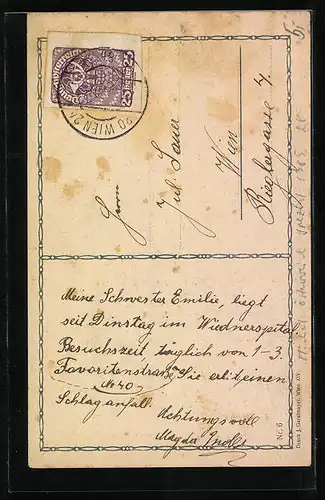 20 WIEN 2
25
Herrn
Jul. Sauer
Wien
Rieglergasse 7.
Meine Schwester Emilie, liegt
seit Dinstag im Wiednerspital
Besuchszeit täglich von 1-3.
Favoritenstrasse Sie erlit einen
№ 40
Schlaganfall.
Achtungsvoll
Magda
Nr. 6
Druck J. Gerstmayer, Wien XIV.